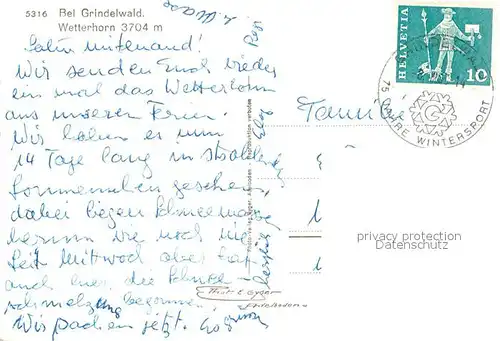 5316 Bei Grindelwald.
Wetterhorn 3704 m
Salü mitenand!
Wir senden Euch wieder
ein mal das Wetterhorn
aus unseren Ferien.
Wir haben es nun
14 Tage lang in strahlendem
Sonnenschein gesehen,
dabei liegen Schneemassen
herum wie noch nie.
Seit Mittwoch aber hat
auch hier die Schnee-
schmelzung begonnen.
Wir packen jetzt. Es grüssen
herzlich
Familie
HELVETIA
10
75 JAHRE WINTERSPORT
G
privacy protection
Datenschutz
Adelboden